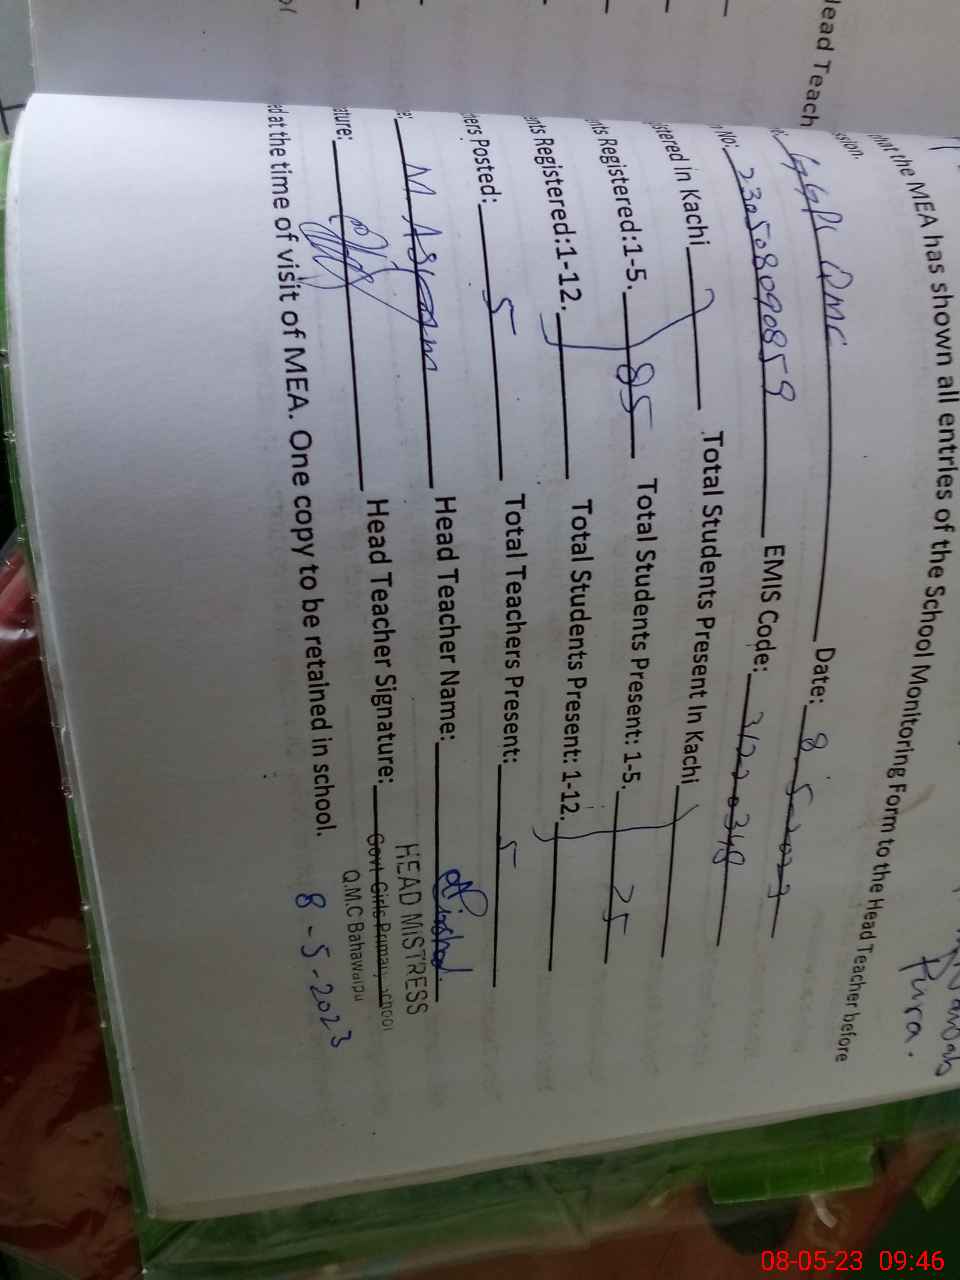 that the MEA has shown all entries of the School Monitoring Form to the Head Teacher before
ssion.
GGPS QMC Date: 8.5-2023
n No: 230508090859 EMIS Code: 31220348
istered In Kachi Total Students Present In Kachi
nts Registered:1-5. 85 Total Students Present: 1-5. 25
nts Registered:1-12. Total Students Present: 1-12.
hers Posted: 5 Total Teachers Present: 5
e: M ASLAM Head Teacher Name:
ature: Head Teacher Signature:
HEAD MISTRESS
Govt Girls Primary School
Q.M.C Bahawalpu
ed at the time of visit of MEA. One copy to be retained in school.
8-5-2023
Head Teach
Pura.
08-05-23 09:46